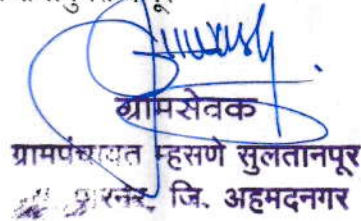 ग्रामसेवक
ग्रामपंचायत म्हसणे सुलतानपूर
जि. अहमदनगर